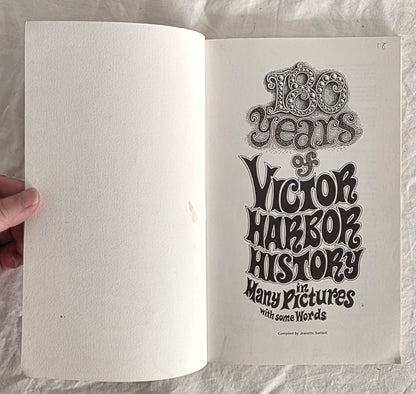 180
Years
of
VICTOR
HARBOR
HISTORY
in
Many Pictures
with some Words
Compiled by Jeanette